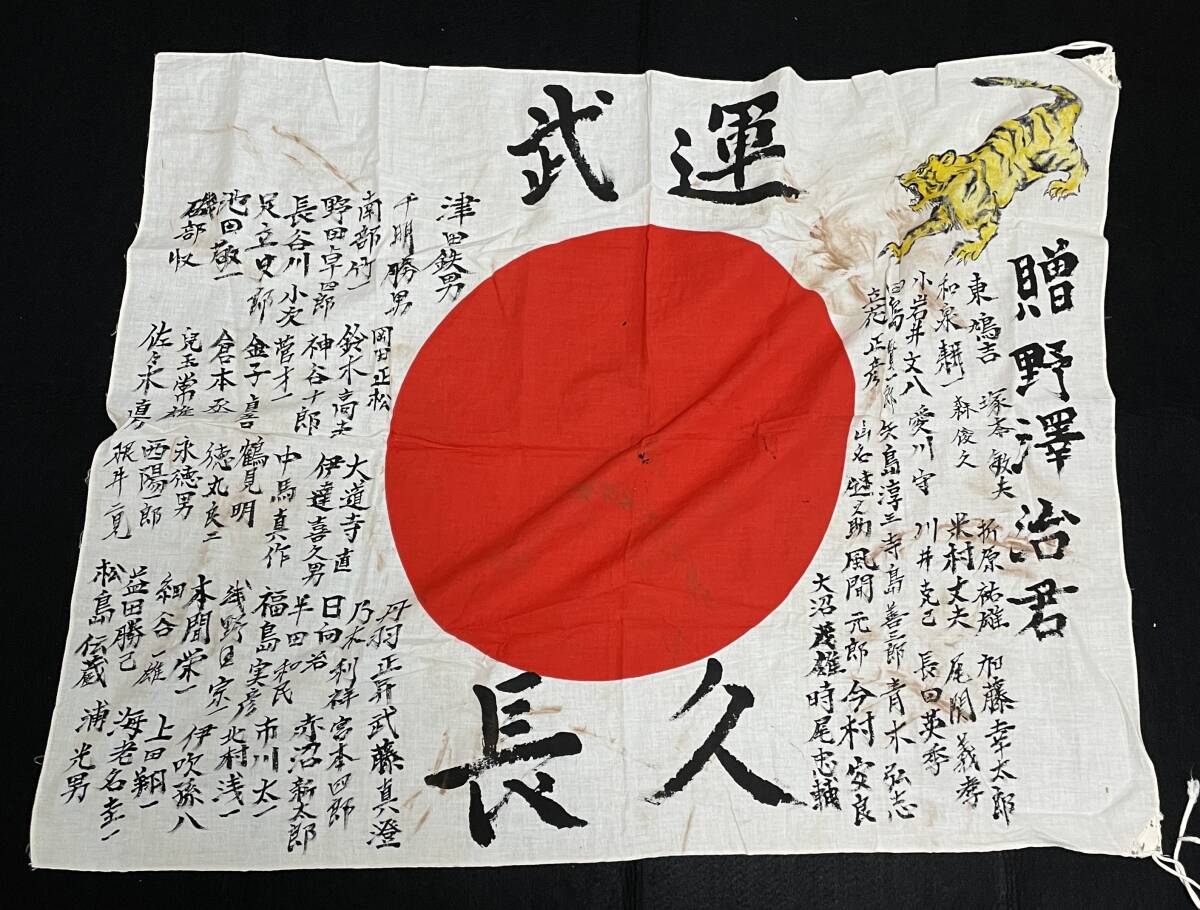 贈野澤治君
武運
長久
東鳩吉
塚本敏夫
折原祐雄
加藤幸太郎
和泉耕一
森俊久
米村丈夫
尾関義孝
小岩井文八
愛川守
川井克己
長田英季
矢島淳三
寺島善三郎
青木弘志
立花正彦
風間元郎
今村安良
大沼茂雄
時尾忠誠
津田鉄男
千明勝男
岡田正松
大道寺直
武藤真澄
南部竹一
鈴木高夫
伊達喜久男
乃木利祥
宮本四郎
野田卓四郎
神谷十郎
中馬真作
日向治
半田和民
赤沼新太郎
長谷川小次
菅才一
鶴見明
福島実彦
市川太一
足立史郎
金子喜
徳丸良二
浅野目宗一
北村浅一
池田敬一
倉本丞
永徳男
本間栄一
伊吹孫八
磯部収
児玉常雄
西陽一郎
細合一雄
上田翔一
佐々木真
益田勝己
海老名圭一
松島伝蔵
浦光男